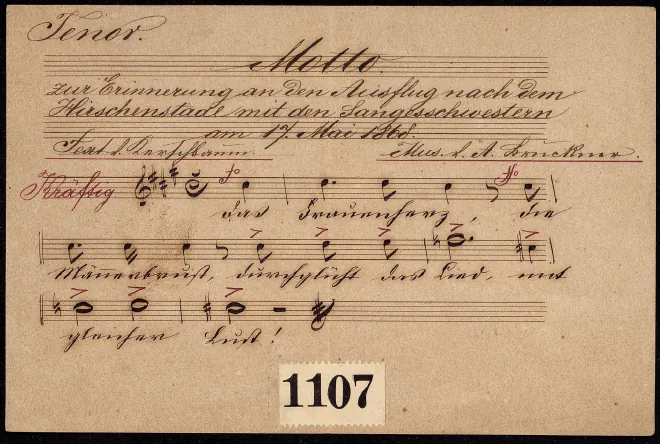 Tenor.
Motto.
zur Erinnerung an den Ausflug nach dem
Hirschenstade mit den Sangesschwestern
am 17. Mai 1868.
Text v. Kerschbaum. Mus. v. A. Bruckner.
Kräftig
das Frauenherz, die
Männerbrust, durchglüht das Lied, mit
gleicher Lust!
1107